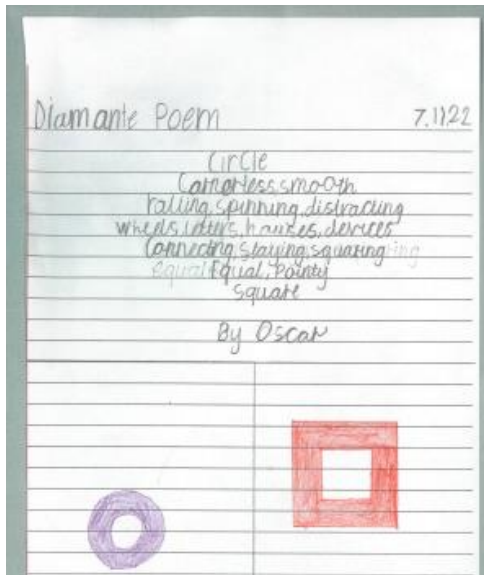 Diamante Poem 7.11.22
Circle
Cornorless, smooth
rolling, spinning, distracting
wheels, houses, devices
Connecting, staying, squaring
Equal, Pointy
Square
By Oscar